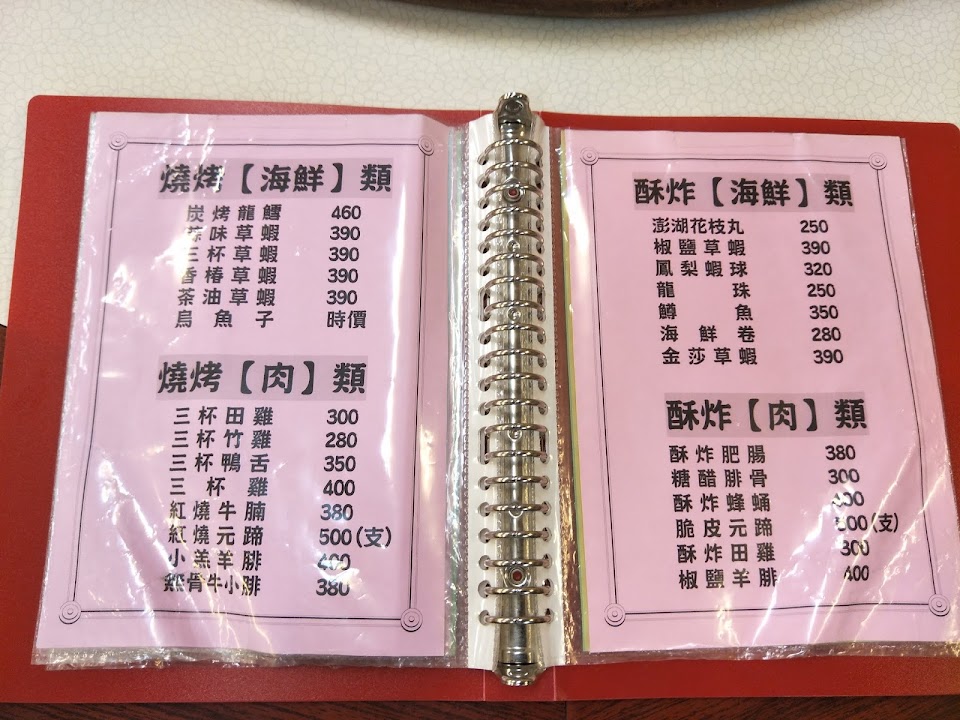 燒烤【海鮮】類
炭烤龍鱈 460
蒜味草蝦 390
三杯草蝦 390
香椿草蝦 390
茶油草蝦 390
烏魚子 時價
燒烤【肉】類
三杯田雞 300
三杯竹雞 280
三杯鴨舌 350
三杯雞 400
紅燒牛腩 380
紅燒元蹄 500(支)
小羔羊腓 400
無骨牛小腓 380
酥炸【海鮮】類
澎湖花枝丸 250
椒鹽草蝦 390
鳳梨蝦球 320
龍珠 250
鱒魚 350
海鮮卷 280
金莎草蝦 390
酥炸【肉】類
酥炸肥腸 380
糖醋腓骨 300
酥炸蜂蛹 400
脆皮元蹄 500(支)
酥炸田雞 300
椒鹽羊腓 400